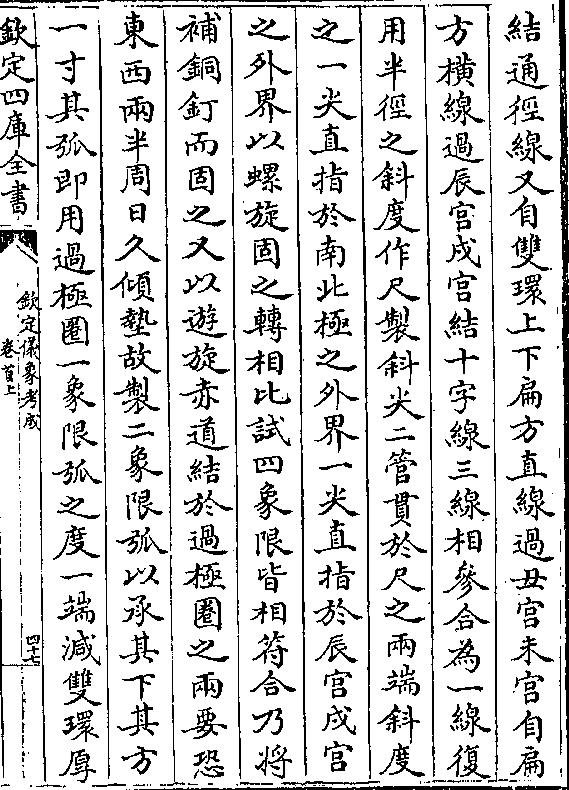 結通徑線又自雙環上下扁方直線過丑宮未宮自扁
方橫線過辰宮戌宮結十字線三線相參合為一線復
用半徑之斜度作尺製斜尖二管貫於尺之兩端斜度
之一尖直指於南北極之外界一尖直指於辰宮戌宮
之外界以螺旋固之轉相比試四象限皆相符合乃將
補銅釘而固之又以遊旋赤道結於過極圈之兩要恐
東西兩半周日久傾墊故製二象限弧以承其下其方
一寸其弧即用過極圈一象限弧之度一端減雙環厚
欽定四庫全書
欽定儀象考成
卷首上
四十七